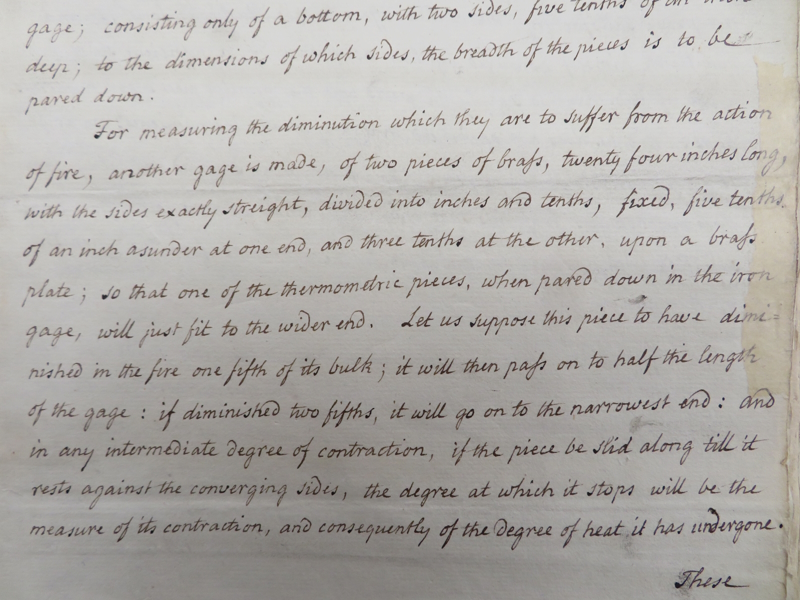 gage; consisting only of a bottom, with two sides, five tenths of an
deep; to the dimensions of which sides, the breadth of the pieces is to be
pared down.
For measuring the diminution which they are to suffer from the action
of fire, another gage is made, of two pieces of braſs, twenty four inches long,
with the sides exactly streight, divided into inches and tenths, fixed, five tenths
of an inch asunder at one end, and three tenths at the other, upon a braſs
plate; so that one of the thermometric pieces, when pared down in the iron
gage, will just fit to the wider end. Let us suppose this piece to have dimi=
nished in the fire one fifth of its bulk; it will then paſs on to half the length
of the gage: if diminished two fifths, it will go on to the narrowest end: and
in any intermediate degree of contraction, if the piece be slid along till it
rests against the converging sides, the degree at which it stops will be the
measure of its contraction, and consequently of the degree of heat it has undergone.
These